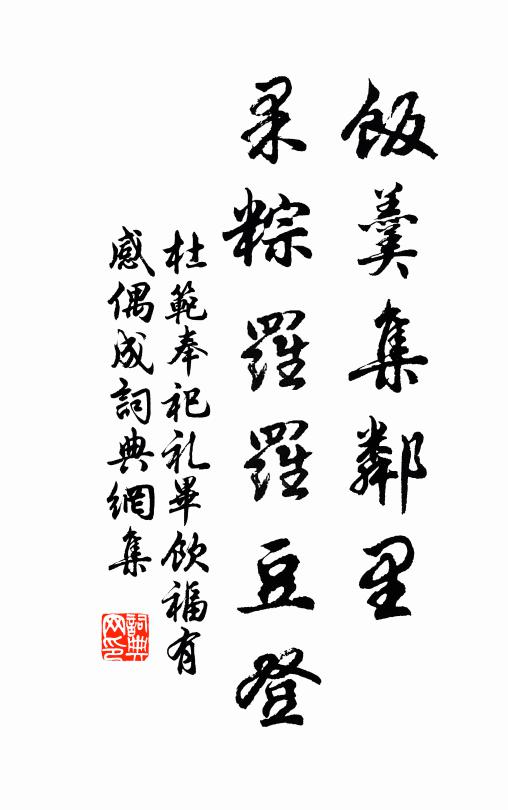 飯羹集鄰里
果粽羅羅豆登
杜範奉祀礼畢飲福有
感偶成詞典網集
詞典网印